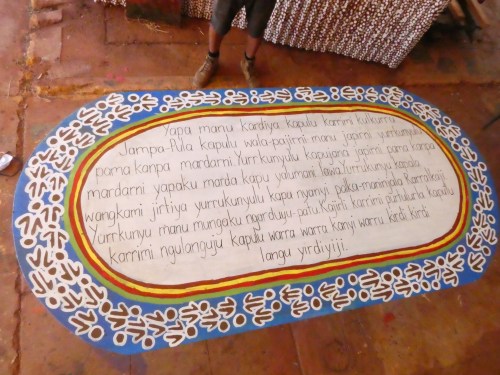 Yapa manu kardiya kapulu karrini kulkurru
Jampa-Pula kapulu wala-pajirni manu japirni yurrkunyulu
pama kanpa mardarni Yurrkunyulu kapujana japirni pama kanpa
mardarni yapaku marda kapu yalumani
wangkami jirtiya yurrukunyulu kapu nyanyi palka-manimala
Yurrkunyu manu mungalu ngarduyu-patu kapulu
karrimi ngulanguju kapulu warra warra kanyi warru kirdi kirdi
langu yirdiyiji.